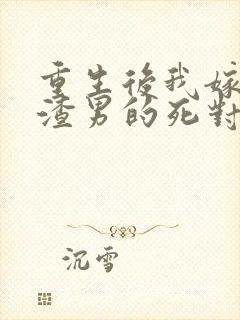 重生後我嫁
渣男的死對
沉雪